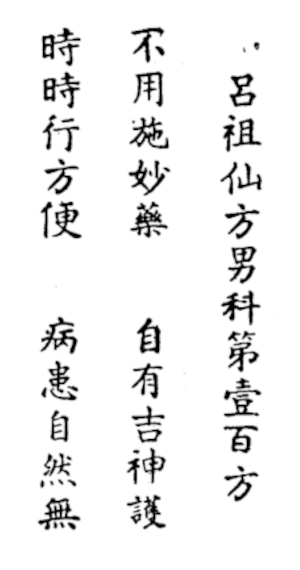 呂祖仙方男科第壹百方
不用施妙藥 自有吉神護
時時行方便 病患自然無